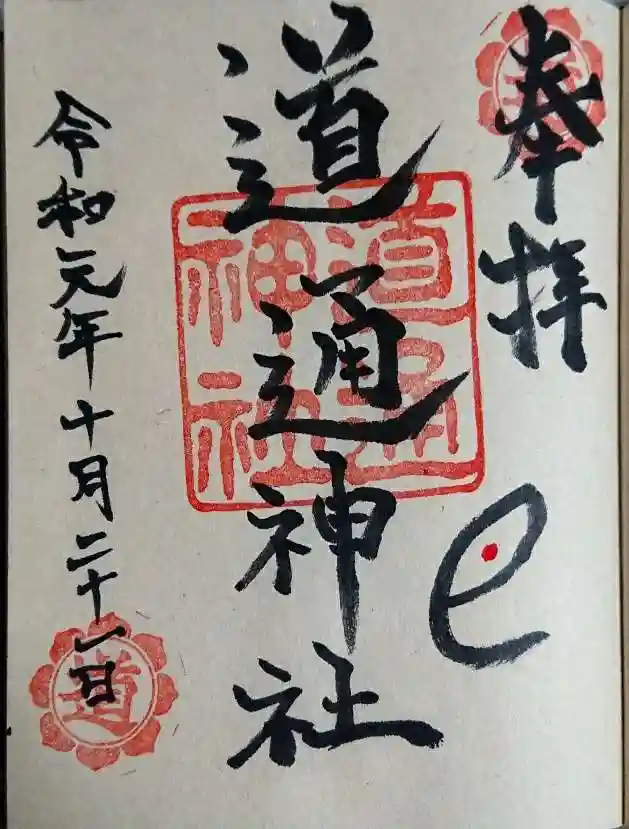 奉拝
巳
道通神社
道通神社
令和元年十月二十一日
道